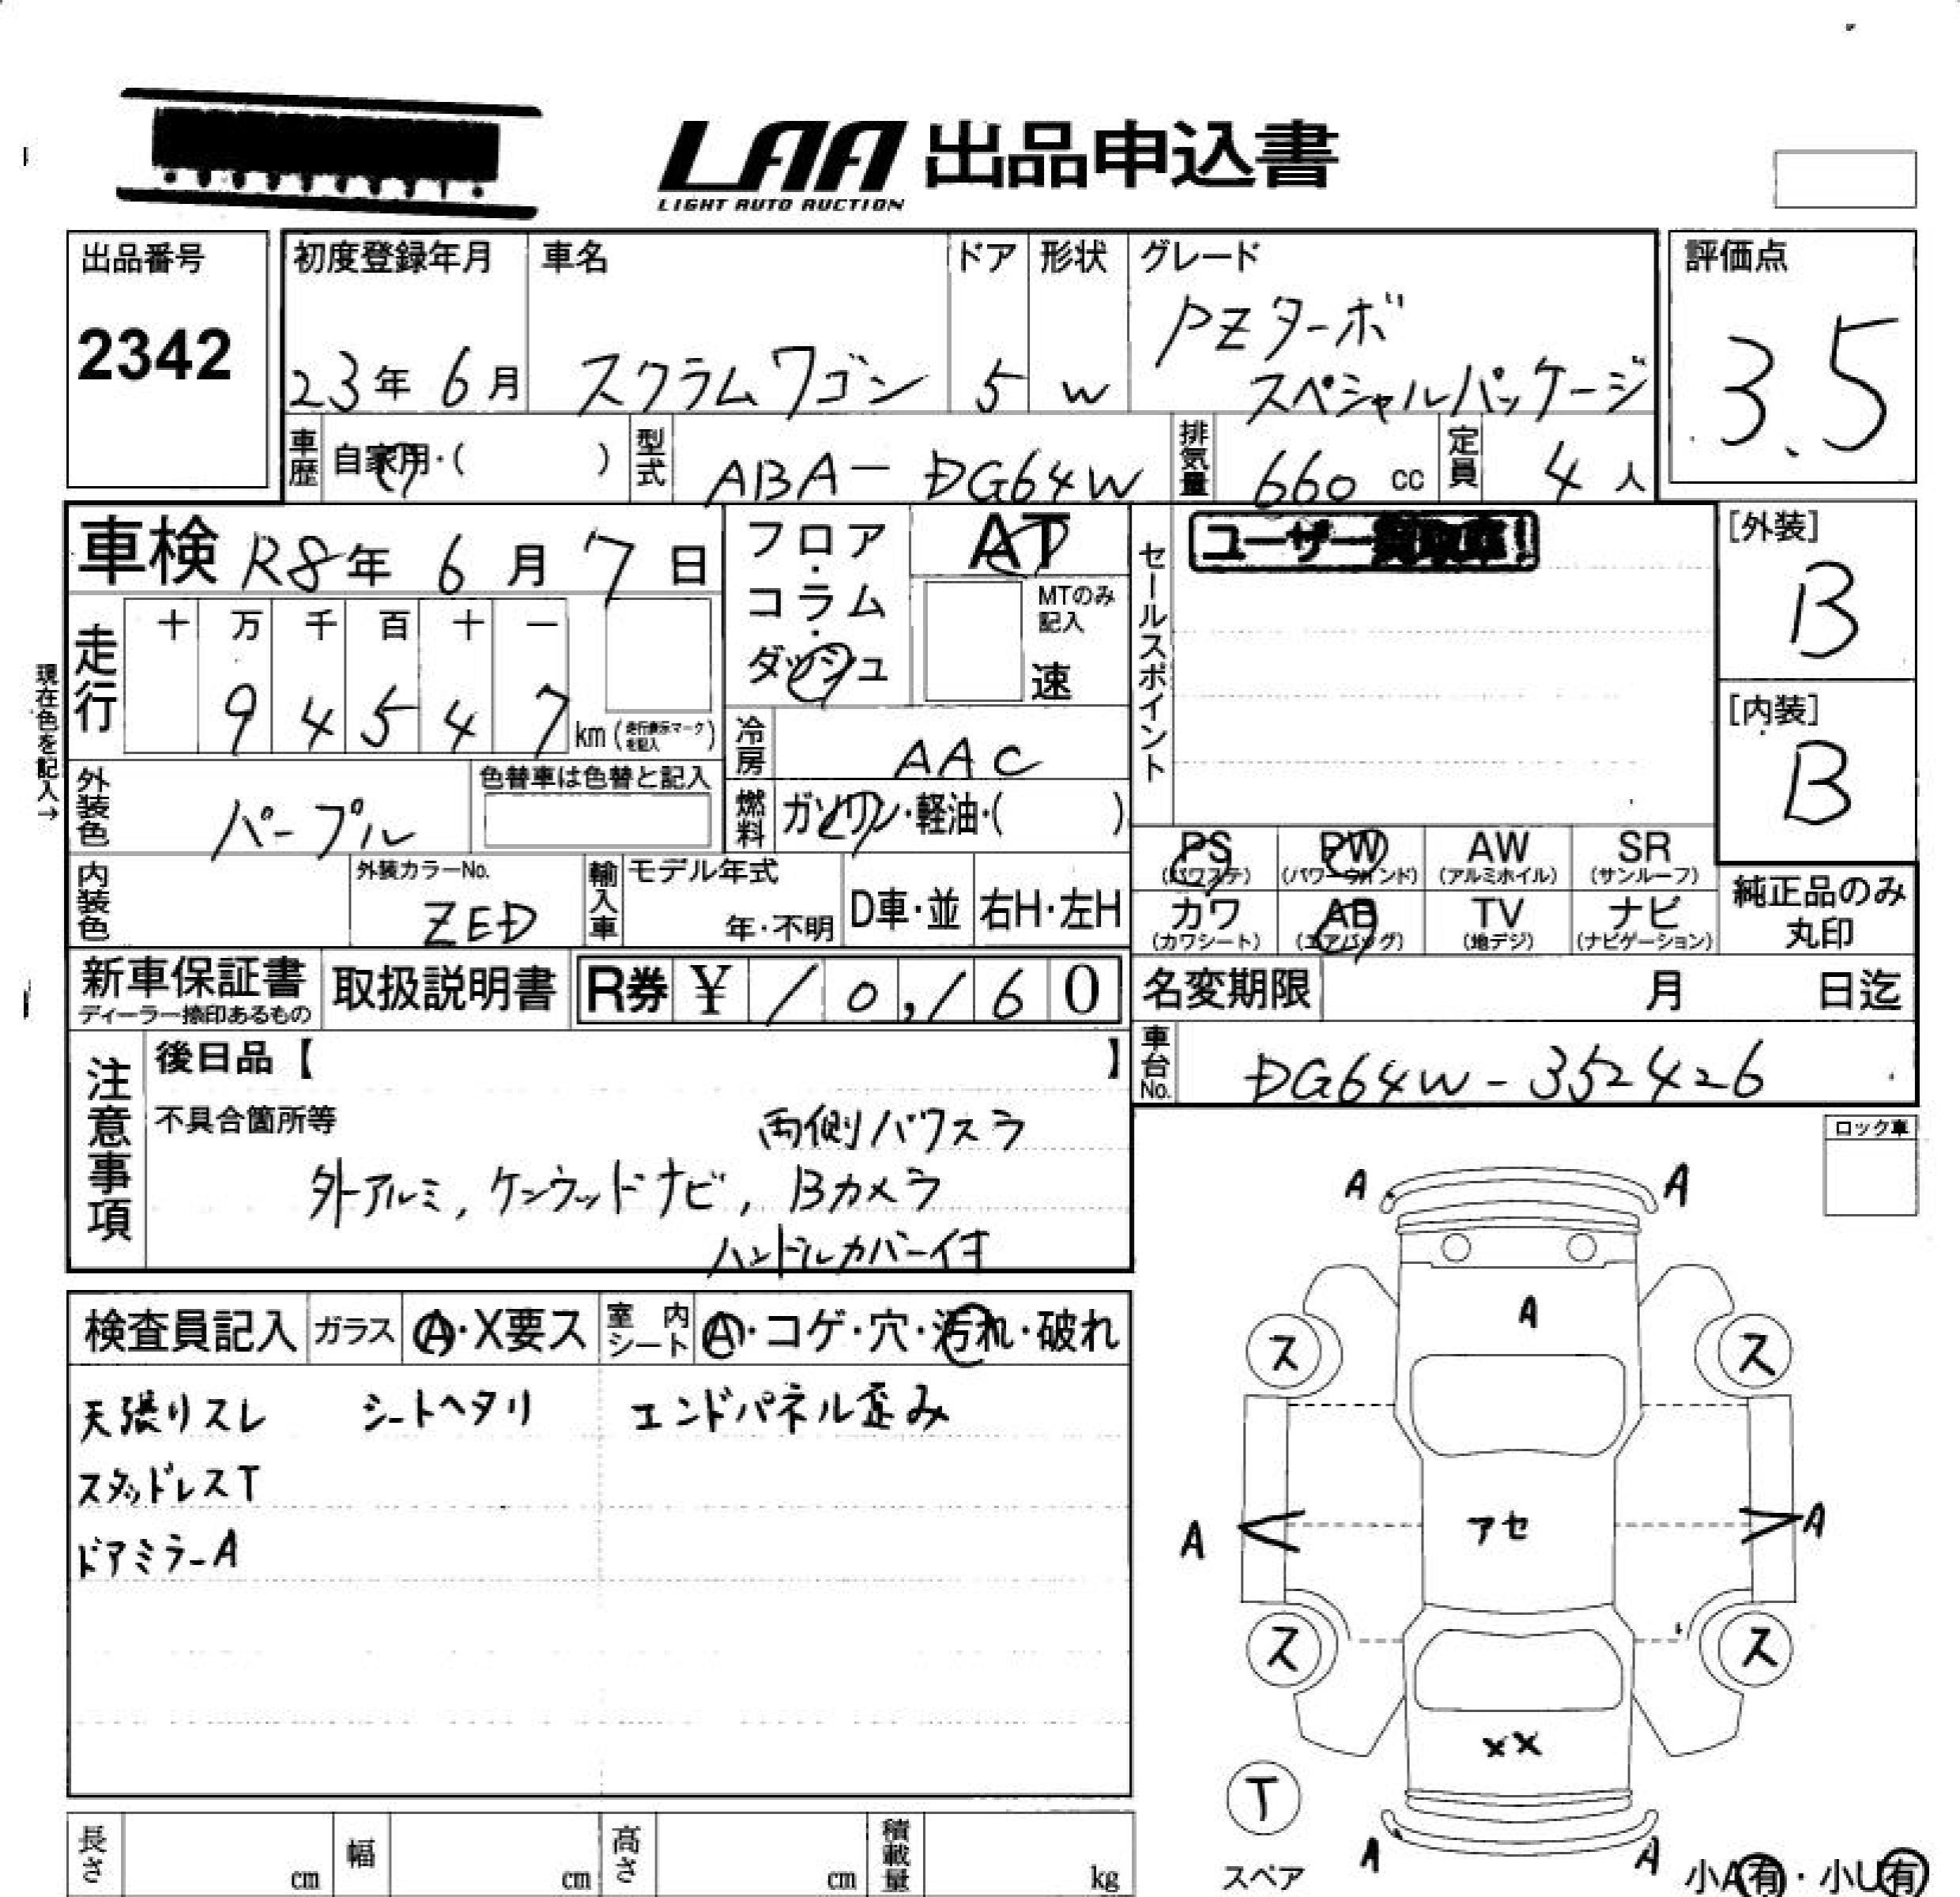 LAA 出品申込書
LIGHT AUTO AUCTION
出品番号
2342
初度登録年月
23年 6月
車名
スクラムワゴン
ドア
5
形状
W
グレード
PZターボ
スペシャルパッケージ
評価点
3.5
車歴 自家用・( )
型式 ABA-DG64W
排気量 660 cc
定員 4人
車検 R8年 6月 7日
フロア・コラム・ダッシュ
AT
MTのみ記入
速
セールスポイント
ユーザー買取車!
[外装]
B
[内装]
B
現在色を記入→
走行
十 万 千 百 十 一
9 4 5 4 7 km (走行表示マークを記入)
冷房 AAC
外装色 パープル
色替車は色替と記入
燃料 ガソリン・軽油・( )
PS (パワステ) PW (パワーウインド) AW (アルミホイル) SR (サンルーフ)
カワ (カワシート) AB (エアバッグ) TV (地デジ) ナビ (ナビゲーション)
純正品のみ丸印
内装色
外装カラーNo.
ZED
輸入車 モデル年式
年・不明
D車・並
右H・左H
新車保証書
ディーラー捺印あるもの
取扱説明書
R券 ¥ 10,160
名変期限 月 日迄
車台No. DG64W-352426
注意事項
後日品【 】
不具合箇所等
両側パワスラ
外アルミ, ケンウッドナビ, Bカメラ
ハンドルカバー付
ロック車
検査員記入 ガラス A・X要ス 室内シート A・コゲ・穴・汚れ・破れ
天張りスレ シートヘタリ エンドパネル歪み
スタッドレスT
ドアミラーA
A A
A
ス ス
A アセ A
ス ス
XX
T
スペア
A A
小A有・小U有
長さ cm 幅 cm 高さ cm 積載量 kg